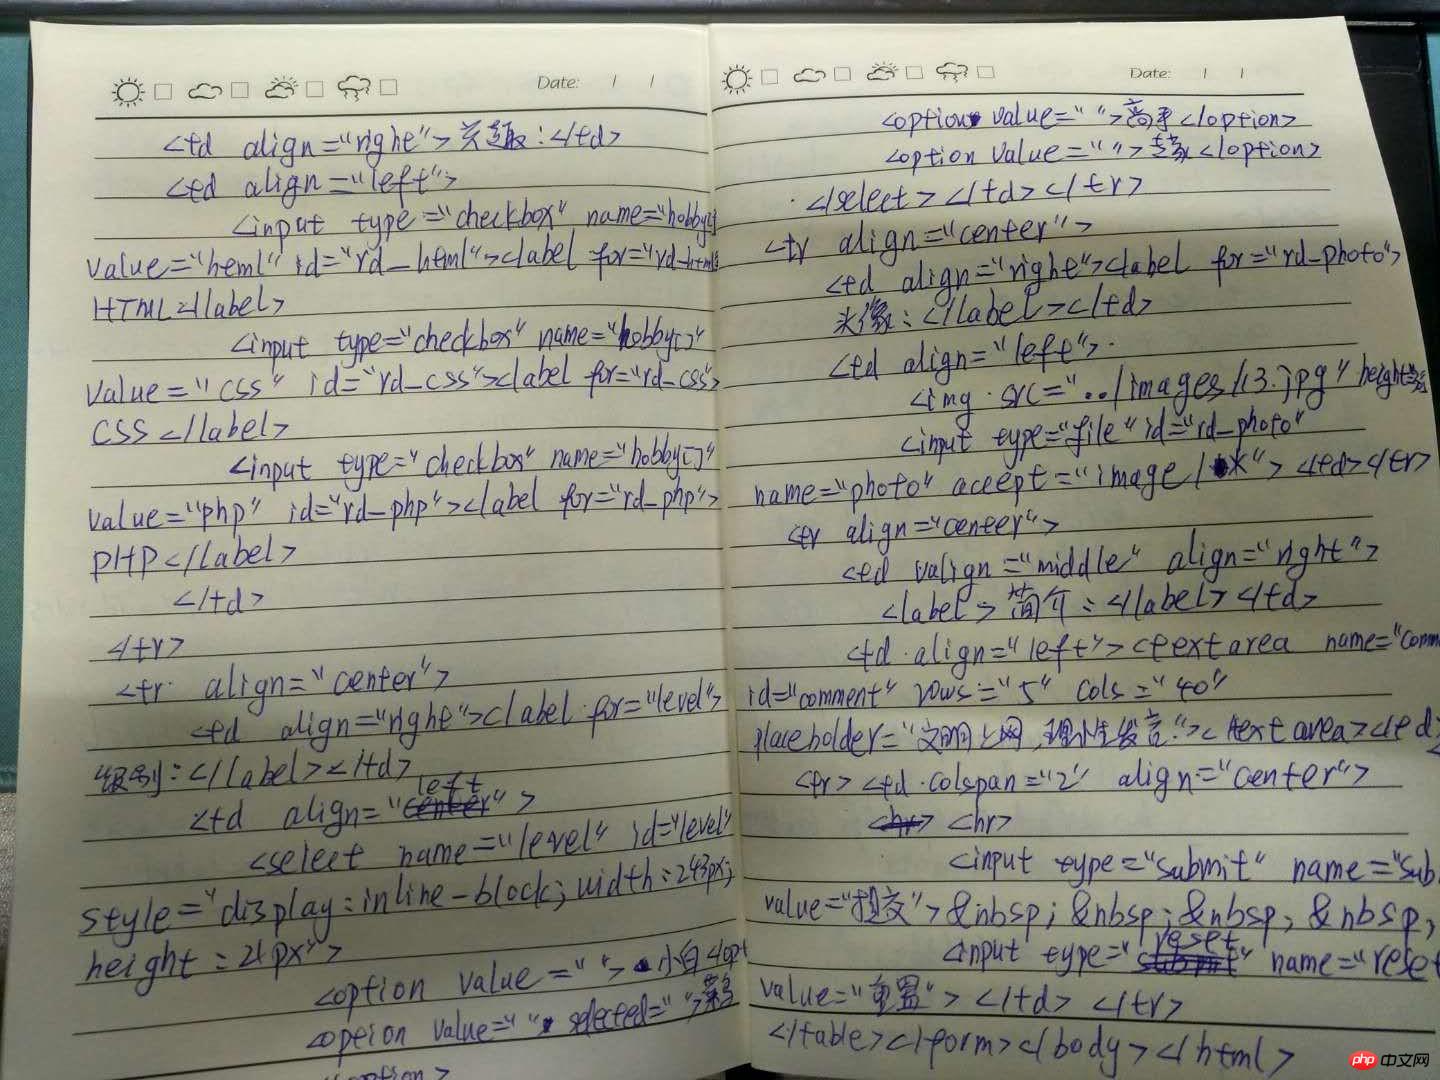 Date: / /
<td align="right">兴趣:</td>
<td align="left">
<input type="checkbox" name="hobby[]
value="heml" id="rd_html"><label for="rd_html
HTML</label>
<input type="checkbox" name="hobby[]"
value="css" id="rd_css"><label for="rd_css">
CSS</label>
<input type="checkbox" name="hobby[]"
value="php" id="rd_php"><label for="rd_php">
PHP</label>
</td>
</tr>
<tr align="center">
<td align="right"><label for="level">
级别:</label></td>
left
<td align="center">
<select name="level" id="level"
style="display:inline-block;width:243px;
height:21px">
<option value="">小白<opt
<option value="" selected="">菜鸟
<option>
Date: / /
<option value="">高手</option>
<option value=""></option>
</select></td></tr>
<tr align="center">
<td align="right"><label for="rd_photo">
头像:</label></td>
<td align="left">
<img src="../images/13.jpg" height=
<input type="file" id="rd_photo"
name="photo" accept="image/*"><td></tr>
<tr align="center">
<td valign="middle" align="right">
<label>简介:</label></td>
<td align="left"><textarea name="comm
id="comment" rows="5" cols="40"
placeholder="文明上网,理性发言"><textarea><td>
<tr><td colspan="2" align="center">
<hr> <hr>
<input type="submit" name="sub
value="提交">&nbsp;&nbsp;&nbsp;&nbsp;
reset
<input type="submit" name="reset
value="重置"></td></tr>
</table></form></body></html>
php 中文网